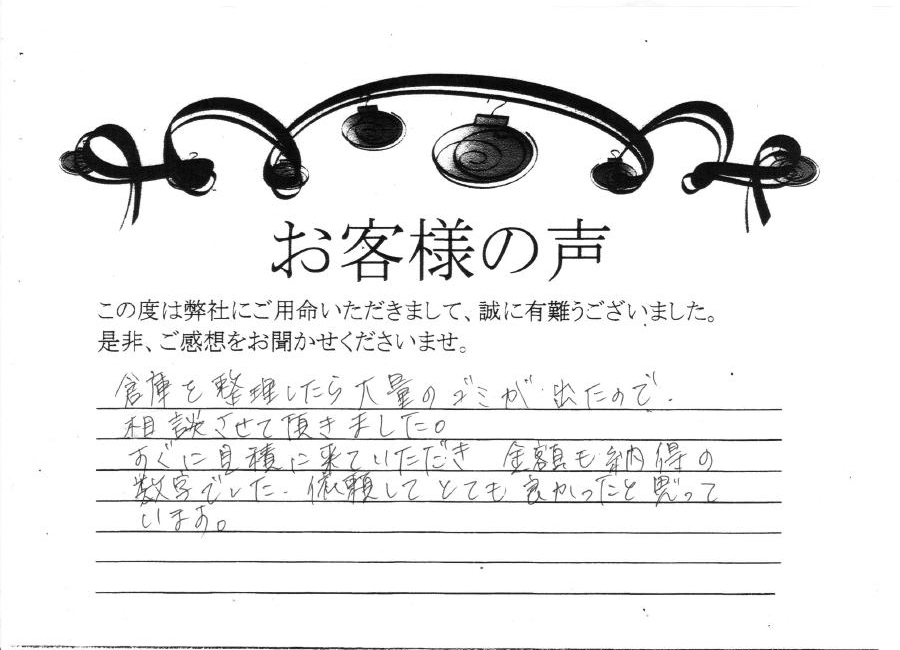 お客様の声
この度は弊社にご用命いただきまして、誠に有難うございました。
是非、ご感想をお聞かせくださいませ。
倉庫を整理したら大量のゴミが出たので、
相談させて頂きました。
すぐに見積に来ていただき 金額も納得の
数字でした。依頼してとても良かったと思って
います。